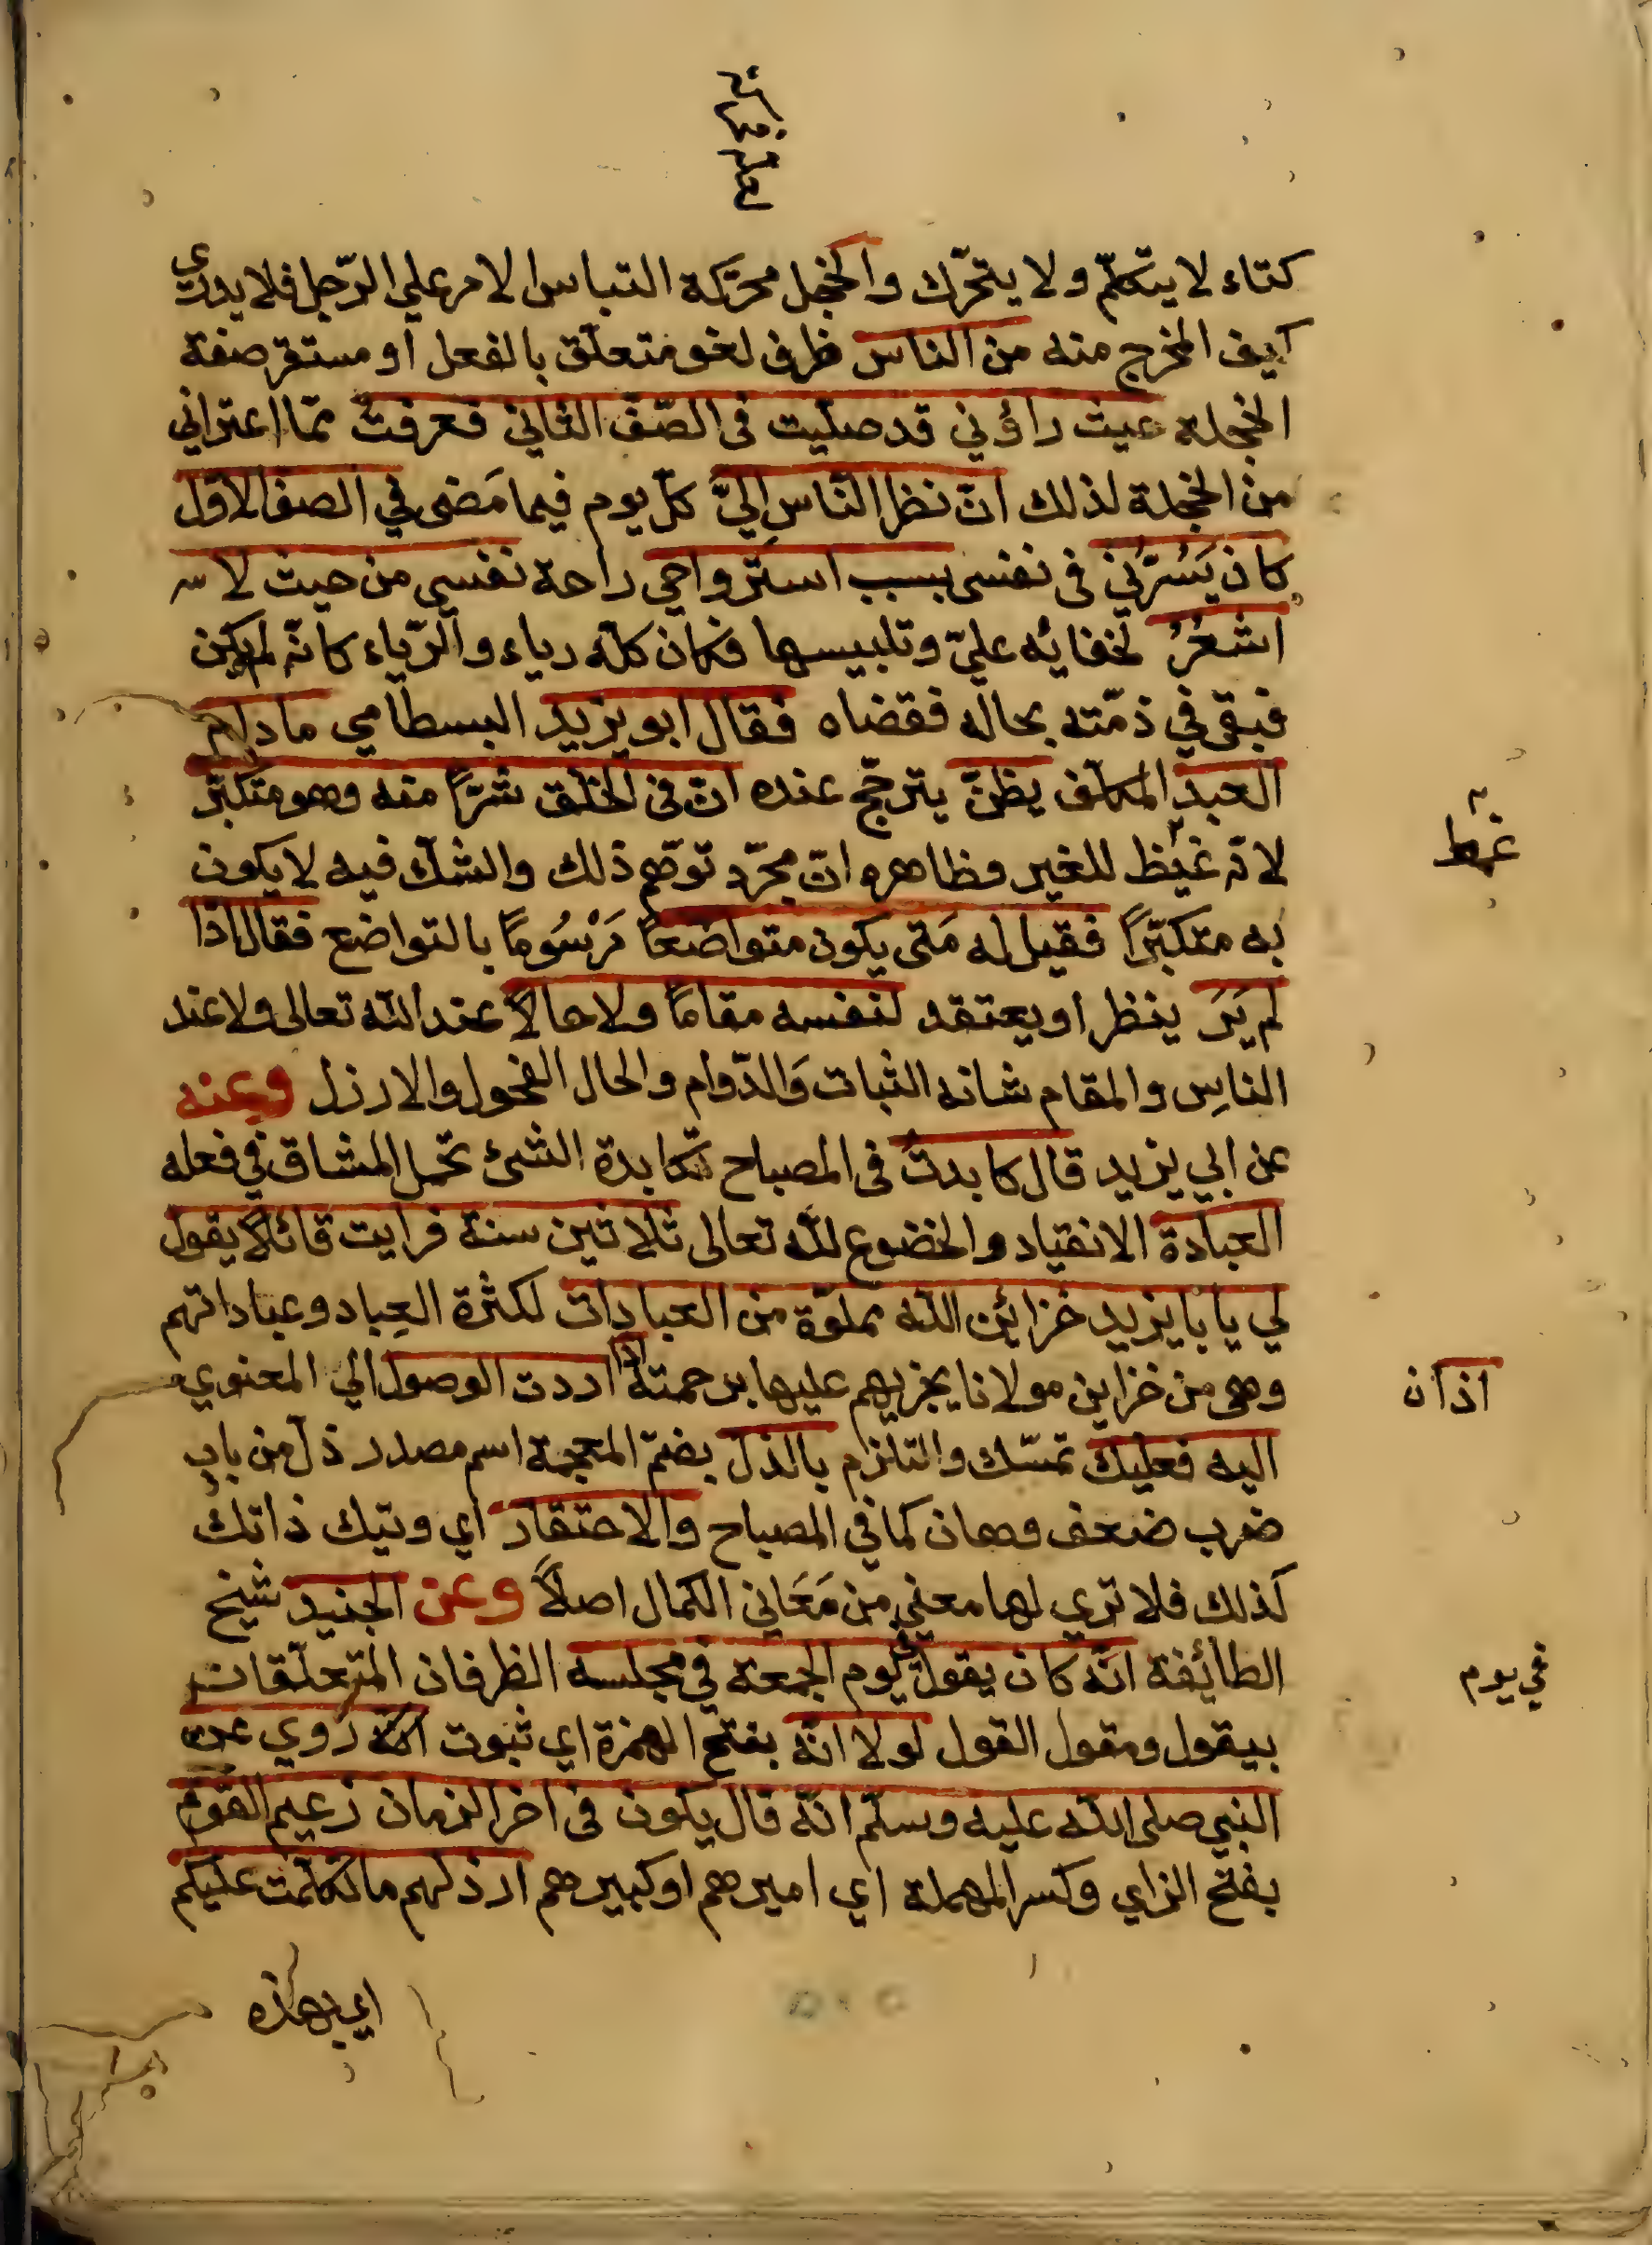 كتاء لا يتكلّم ولا يتحرّك والخجل محرّكة التباس الامر علي الرّجل فلا يدري
كيف المخرج منه من الناس ظرف لغو متعلّق بالفعل او مستقر صفة
الخجلة حيث راؤني قد صلّيت في الصّفّ الثاني فعرفت ممّا اعتراني
من الخجلة لذلك انّ نظر الناس اليّ كلّ يوم فيما مَضى في الصف الاوّل
كان يَسُرّني في نفسى بسبب استرواحي راحة نفسي من حيث لا
اشعُرُ لخفائه عليّ وتلبيسها فكان كلّه رياء والرّياء كانّه لم يكن
فبقي في ذمّته بحاله فقضاه فقال ابو يزيد البسطامي ما دام
العبد المكلف يظنّ يترجّح عنده انّ في الخلق شرّاً منه وهو متكبّر
لانّه غيظ للغير وظاهره انّ مجرّد توهّم ذلك والشكّ فيه لا يكون
به متكبّراً فقيل له مَتى يكون متواضعاً مَرْسُوماً بالتواضع فقال اذا
لم يَرَ ينظر او يعتقد لنفسه مقاماً ولا حالاً عند الله تعالى ولا عند
الناس والمقام شانه الثبات وَالدّوام والحال التحول والارزل وعنه
عن ابي يزيد قال كابدتُ في المصباح مكابدة الشئ تحمل المشاق في فعله
العبادة الانقياد والخضوع لله تعالى ثلاثين سنة فرايت قائلاً يقول
لي يا با يزيد خزائن الله مملوّة من العبادات لكثرة العِباد وعباداتهم
وهي من خزاين مولانا يجزيهم عليها برحمته اذا اردت الوصول الي المعنوي
اليه فعليك تمسّك والتلزم بالذل بضمّ المعجمة اسم مصدر ذلّ من باب
ضرب ضعف وهان كما في المصباح والاحتقار اي وتيك ذاتك
كذلك فلا تري لها معني من مَعَاني الكمال اصلاً وعن الجنيد شيخ
الطائفة انّه كان يقول يوم الجمعة في مجلسه الظرفان المتعلّقات
بيقول ومقول القول لولا انّه بفتح الهمزة اي ثبوت انّه رُوي عن
النبي صلى الله عليه وسلّم انّه قال يكون في اخر الزمان زعيم القوم
بفتح الزاي وكسر المهملة اي اميرهم او كبيرهم ارذلهم ما تكلّمت عليكم
اي بهذه
غمط
اذ ان
في يوم